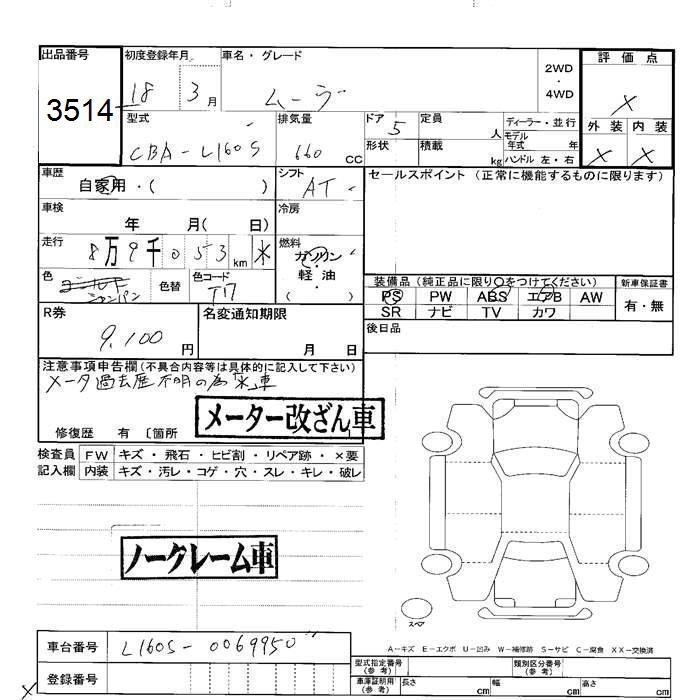 出品番号
3514
初度登録年月
18 3月
車名・グレード
ムーラ
2WD
4WD
評価点
X
外装 内装
X X
型式
CBA-L160S
排気量
660 CC
ドア 5
形状
定員 人
積載 kg
ディーラー・並行
モデル年式 年
ハンドル 左・右
車歴
自家用・( )
シフト
AT
セールスポイント (正常に機能するものに限ります)
車検
年 月( 日)
冷房
走行
8万9千053km
燃料
ガソリン
軽油
( )
色
シャンパン
色替
色コード
T17
装備品 (純正品に限り○をつけてください)
PS PW ABS エアB AW
SR ナビ TV カワ
新車保証書
有・無
R券
9,100 円
名変通知期限
月 日
後日品
注意事項申告欄 (不具合内容等は具体的に記入して下さい)
メータ過去歴不明の為*車
メーター改ざん車
修復歴 有 〔箇所
検査員記入欄
FW キズ・飛石・ヒビ割・リペア跡・×要
内装 キズ・汚レ・コゲ・穴・スレ・キレ・破レ
ノークレーム車
スペア
車台番号
L160S-0069950
A-キズ E-エクボ U-凹み W-補修跡 S-サビ C-腐食 XX-交換済
登録番号
型式指定番号(参考)
類別区分番号(参考)
車庫証明用(参考)
長さ cm 幅 cm 高さ cm
X